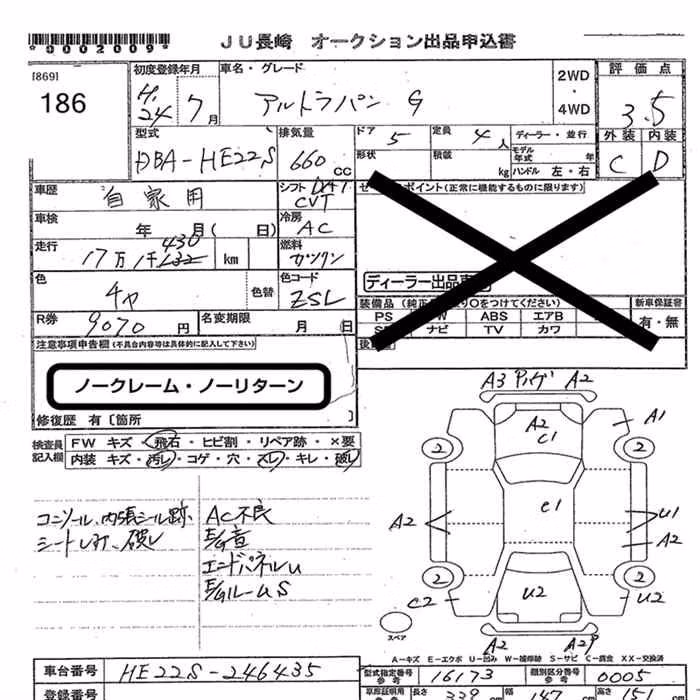 *0002009*
JU長崎 オークション出品申込書
[869]
186
初度登録年月
H.24 7月
車名・グレード
アルトラパン G
2WD
・
4WD
評価点
3.5
型式
DBA-HE22S
排気量
660 CC
ドア 5
定員 4人
ディーラー・並行
形状
積載 kg
モデル年式 年
ハンドル 左・右
外装 内装
C D
車歴
自家用
シフト DAT
CVT
ポイント(正常に機能するものに限ります)
車検
年 月( 日)
冷房
AC
走行
17万1千132 430 km
燃料
ガソリン
色
チャ
色替
色コード
ZSL
ディーラー出品車
R券
9070 円
名変期限
月 日
装備品
○をつけてください)
新車保証書
PS W ABS エアB
有・無
ナビ TV カワ
注意事項申告欄(不具合内容等は具体的に記入して下さい)
ノークレーム・ノーリターン
修復歴 有〔箇所 〕
検査員記入欄
FW キズ・飛石・ヒビ割・リペア跡・×要
内装 キズ・汚レ・コゲ・穴・スレ・キレ・破レ
コンソール、内張シール跡
シートしみ、破レ
AC不良
E/G音
エンドパネルU
E/GルームS
A3 バンパ A2
A2
C1
A1
2
2
C1
A2
U1
A2
2
2
U2
C2
U2
スペア
A2
A2
A-キズ E-エクボ U-凹み W-補修跡 S-サビ C-腐食 XX-交換済
車台番号
HE22S-246435
型式指定番号 参考
16173
類別区分番号 参考
0005
登録番号
長さ 339 cm
幅 147 cm
高さ 151